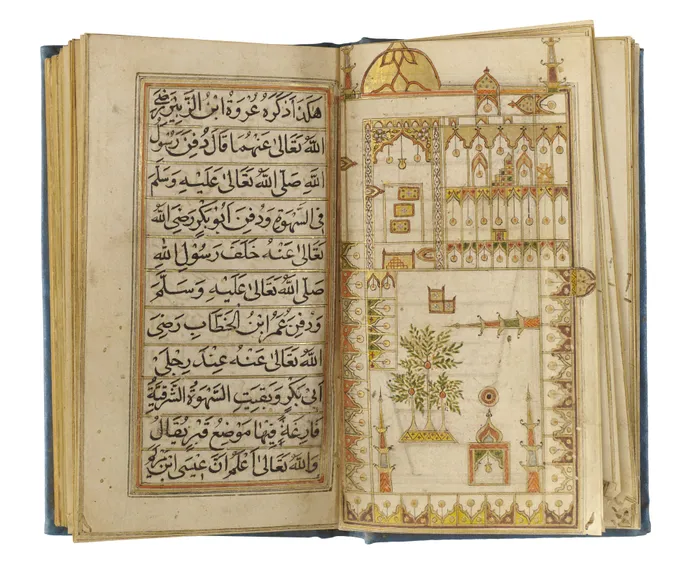 هٰكَذَا ذَكَرَهُ عُرْوَةُ ابْنُ الزُّبَيْرِ رَضِيَ
اللهُ تَعَالٰى عَنْهُمَا قَالَ دُفِنَ رَسُولُ
اللهِ صَلَّى اللهُ تَعَالٰى عَلَيْهِ وَسَلَّمَ
فِي السَّهْوَةِ وَدُفِنَ أَبُو بَكْرٍ رَضِيَ اللهُ
تَعَالٰى عَنْهُ خَلْفَ رَسُولِ اللهِ
صَلَّى اللهُ تَعَالٰى عَلَيْهِ وَسَلَّمَ
وَدُفِنَ عُمَرُ ابْنُ الْخَطَّابِ رَضِيَ
اللهُ تَعَالٰى عَنْهُ عِنْدَ رِجْلَيْ
أَبِي بَكْرٍ وَبَقِيَتِ السَّهْوَةُ الشَّرْقِيَّةُ
فَارِغَةً فِيهَا مَوْضِعُ قَبْرٍ يُقَالُ
وَاللهُ تَعَالٰى أَعْلَمُ أَنَّ عِيسَى ابْنَ